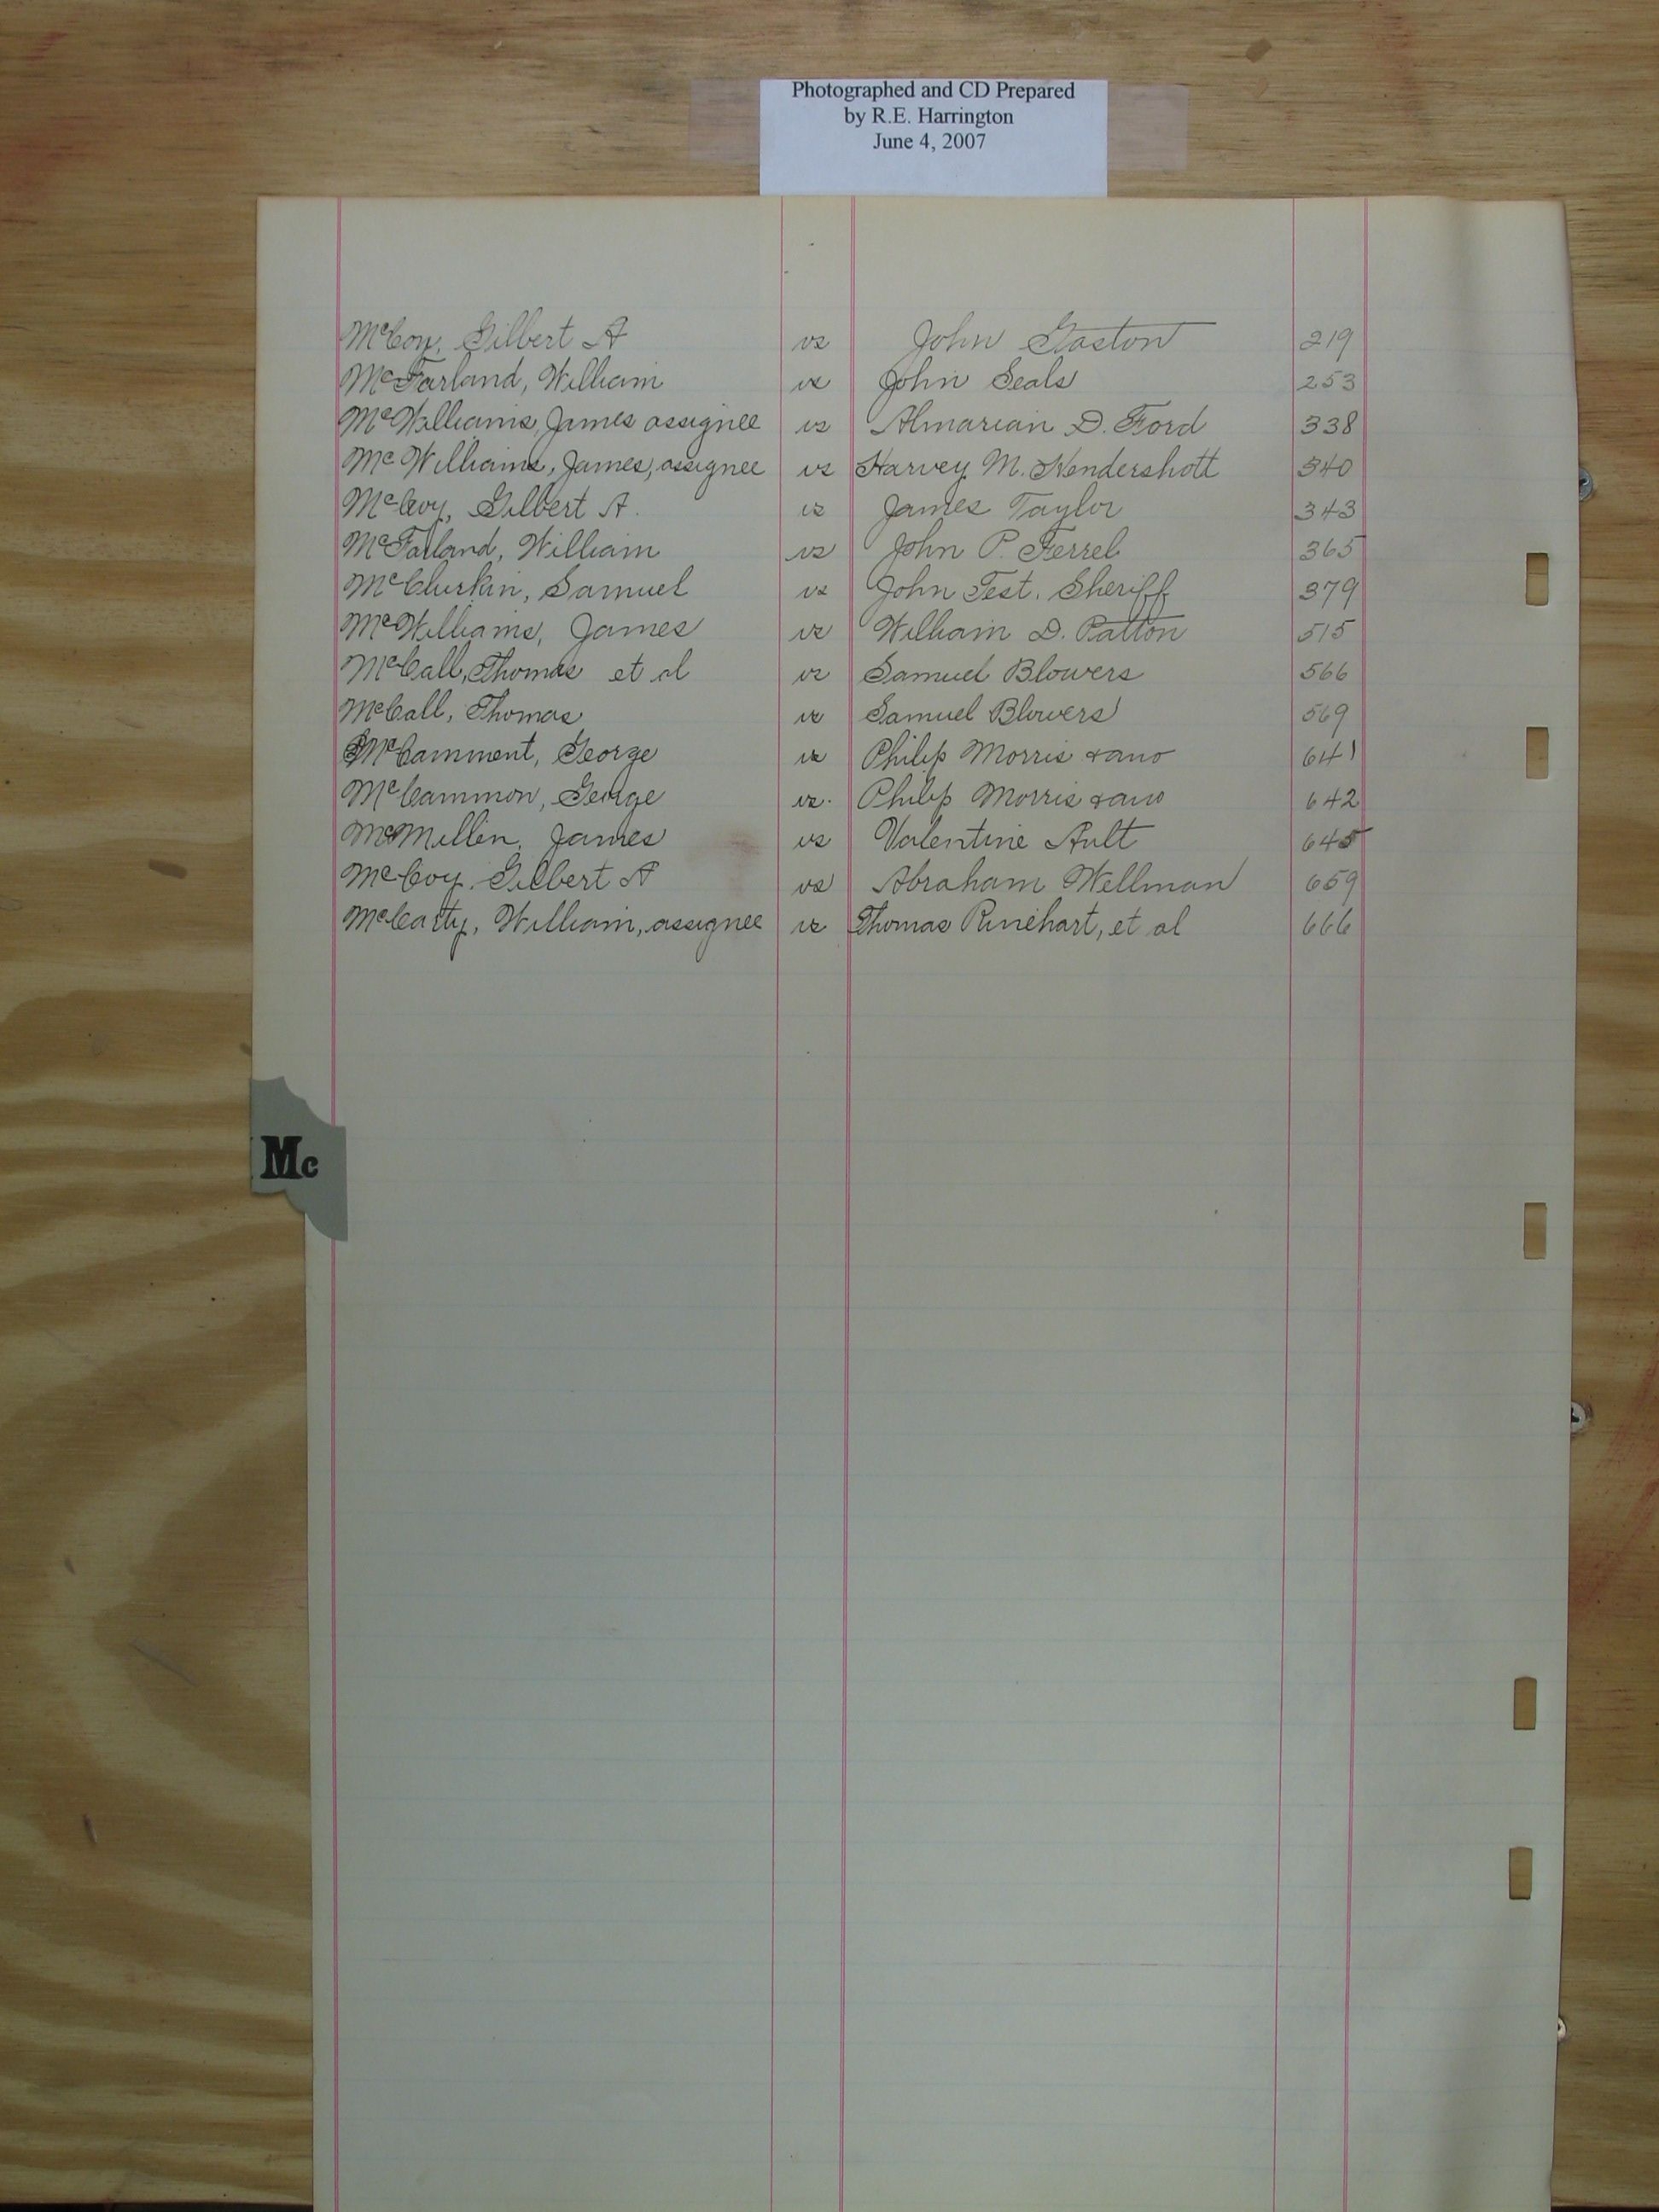 Photographed and CD Prepared
by R.E. Harrington
June 4, 2007
McCoy, Gilbert A vs John Gaston 219
McFarland, William vs John Seals 253
McWilliams, James assignee vs Almarian D. Ford 338
McWilliams, James, assignee vs Harvey M. Hendershott 340
McCoy, Gilbert A. vs James Taylor 343
McFarland, William vs John P. Ferrel 365
McClurkin, Samuel vs John Test, Sheriff 379
McWilliams, James vs William D. Patton 515
McCall, Thomas et al vs Samuel Blowers 566
McCall, Thomas vs Samuel Blowers 569
McCamment, George vs Philip Morris & ano 641
McCammon, George vs. Philip Morris & ano 642
McMillen, James vs Valentine Ault 645
McCoy, Gilbert A vs Abraham Wellman 659
McCarty, William, assignee vs Thomas Rinehart, et al 666
Mc